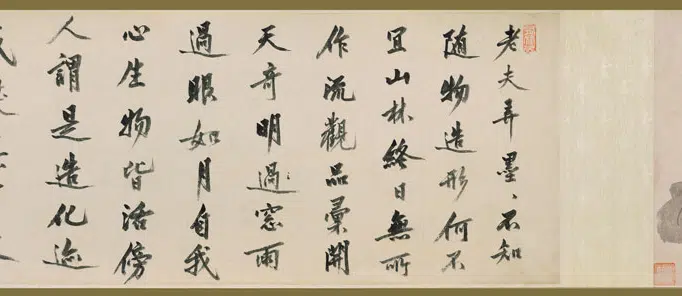 老夫弄墨、不知
随物造形何不
宜山林終日無所
作流觀品彙開
天奇明過窓雨
過眼如月自我
心生物皆活傍
人謂是造化迹